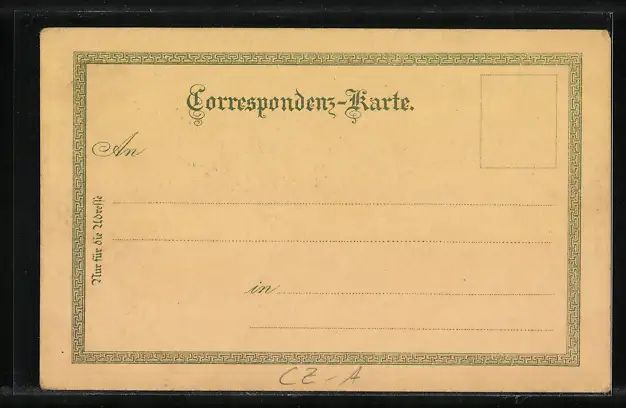 Correspondenz-Karte.
An
Nur für die Adresse
in
CZ-A